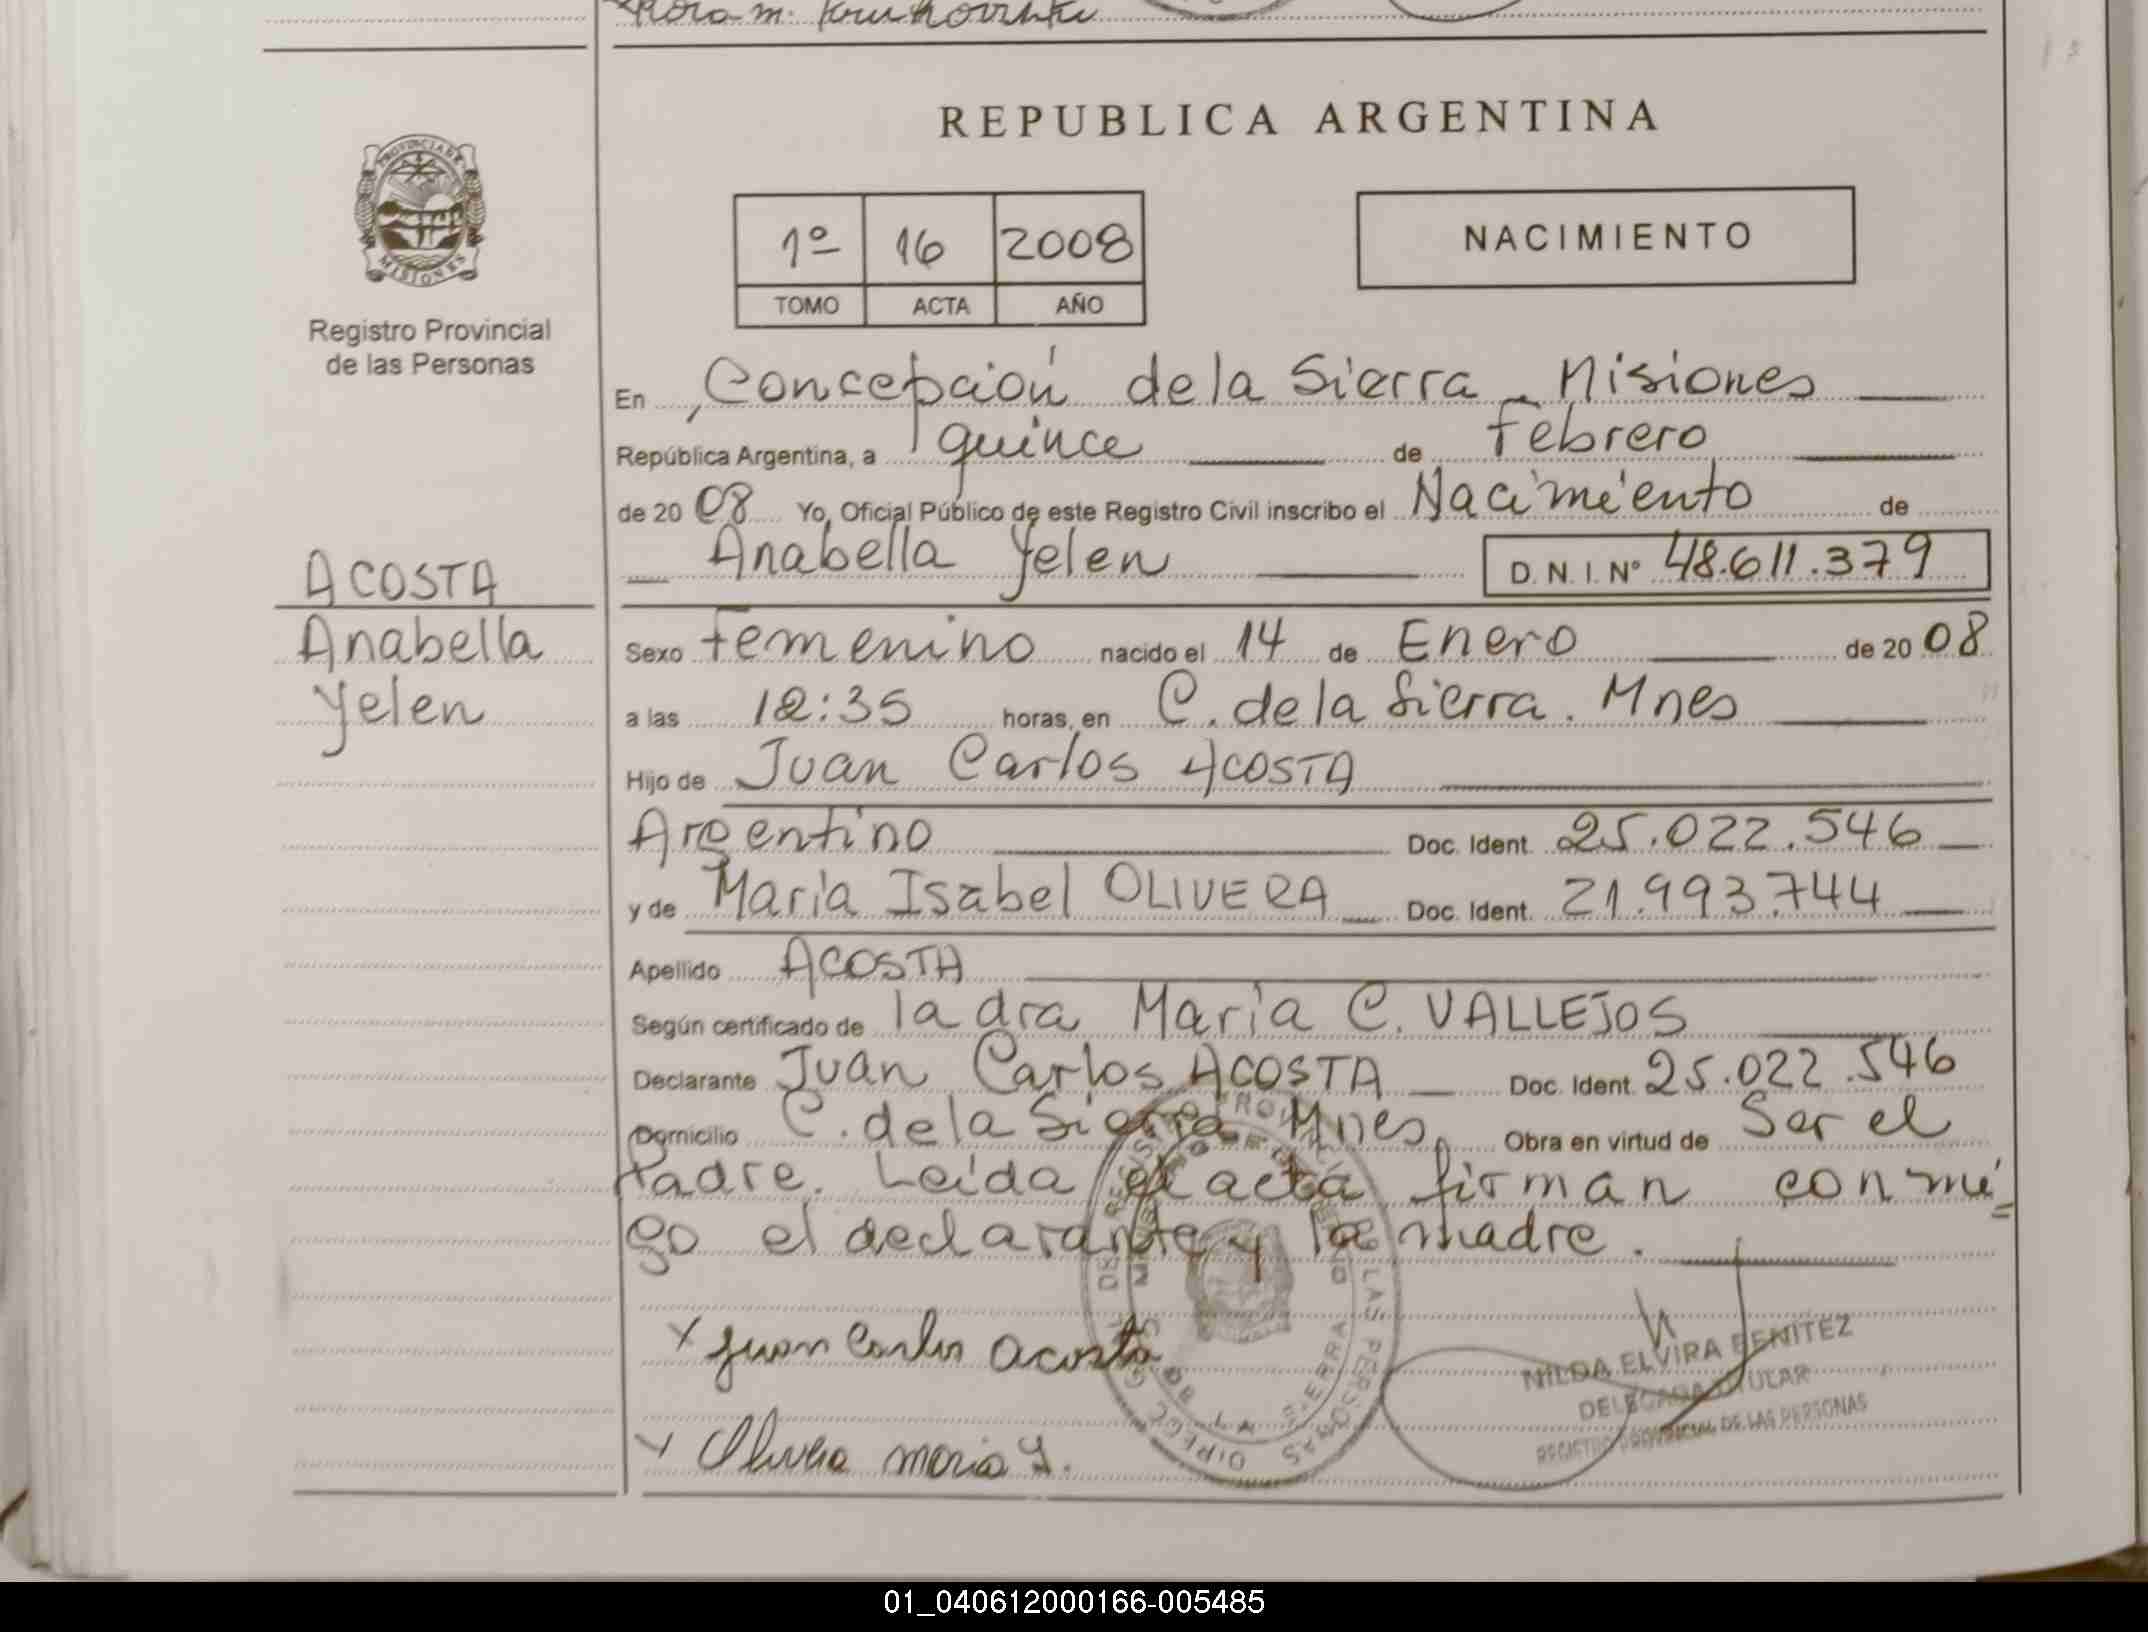 REPUBLICA ARGENTINA
PROVINCIA DE
MISIONES
Registro Provincial
de las Personas
1º 16 2008
TOMO ACTA AÑO
NACIMIENTO
En Concepción de la Sierra - Misiones
República Argentina, a quince de Febrero
de 2008 Yo, Oficial Público de este Registro Civil inscribo el Nacimiento de
Anabella Yelen D.N.I. Nº 48.611.379
ACOSTA
Anabella
Yelen
Sexo Femenino nacido el 14 de Enero de 2008
a las 12:35 horas, en C. de la Sierra. Mnes
Hijo de Juan Carlos ACOSTA
Argentino Doc. Ident. 25.022.546
y de María Isabel OLIVERA Doc. Ident. 21.993.744
Apellido ACOSTA
Según certificado de la dra María C. VALLEJOS
Declarante Juan Carlos ACOSTA Doc. Ident. 25.022.546
Domicilio C. de la Sierra Mnes. Obra en virtud de Ser el
Padre. Leída el acta firman conmi=
go el declarante y la madre.
x Juan Carlos Acosta
x Olivera Maria Y.
NILDA ELVIRA BENITEZ
DELEGADA TITULAR
REGISTRO PROVINCIAL DE LAS PERSONAS
01_040612000166-005485